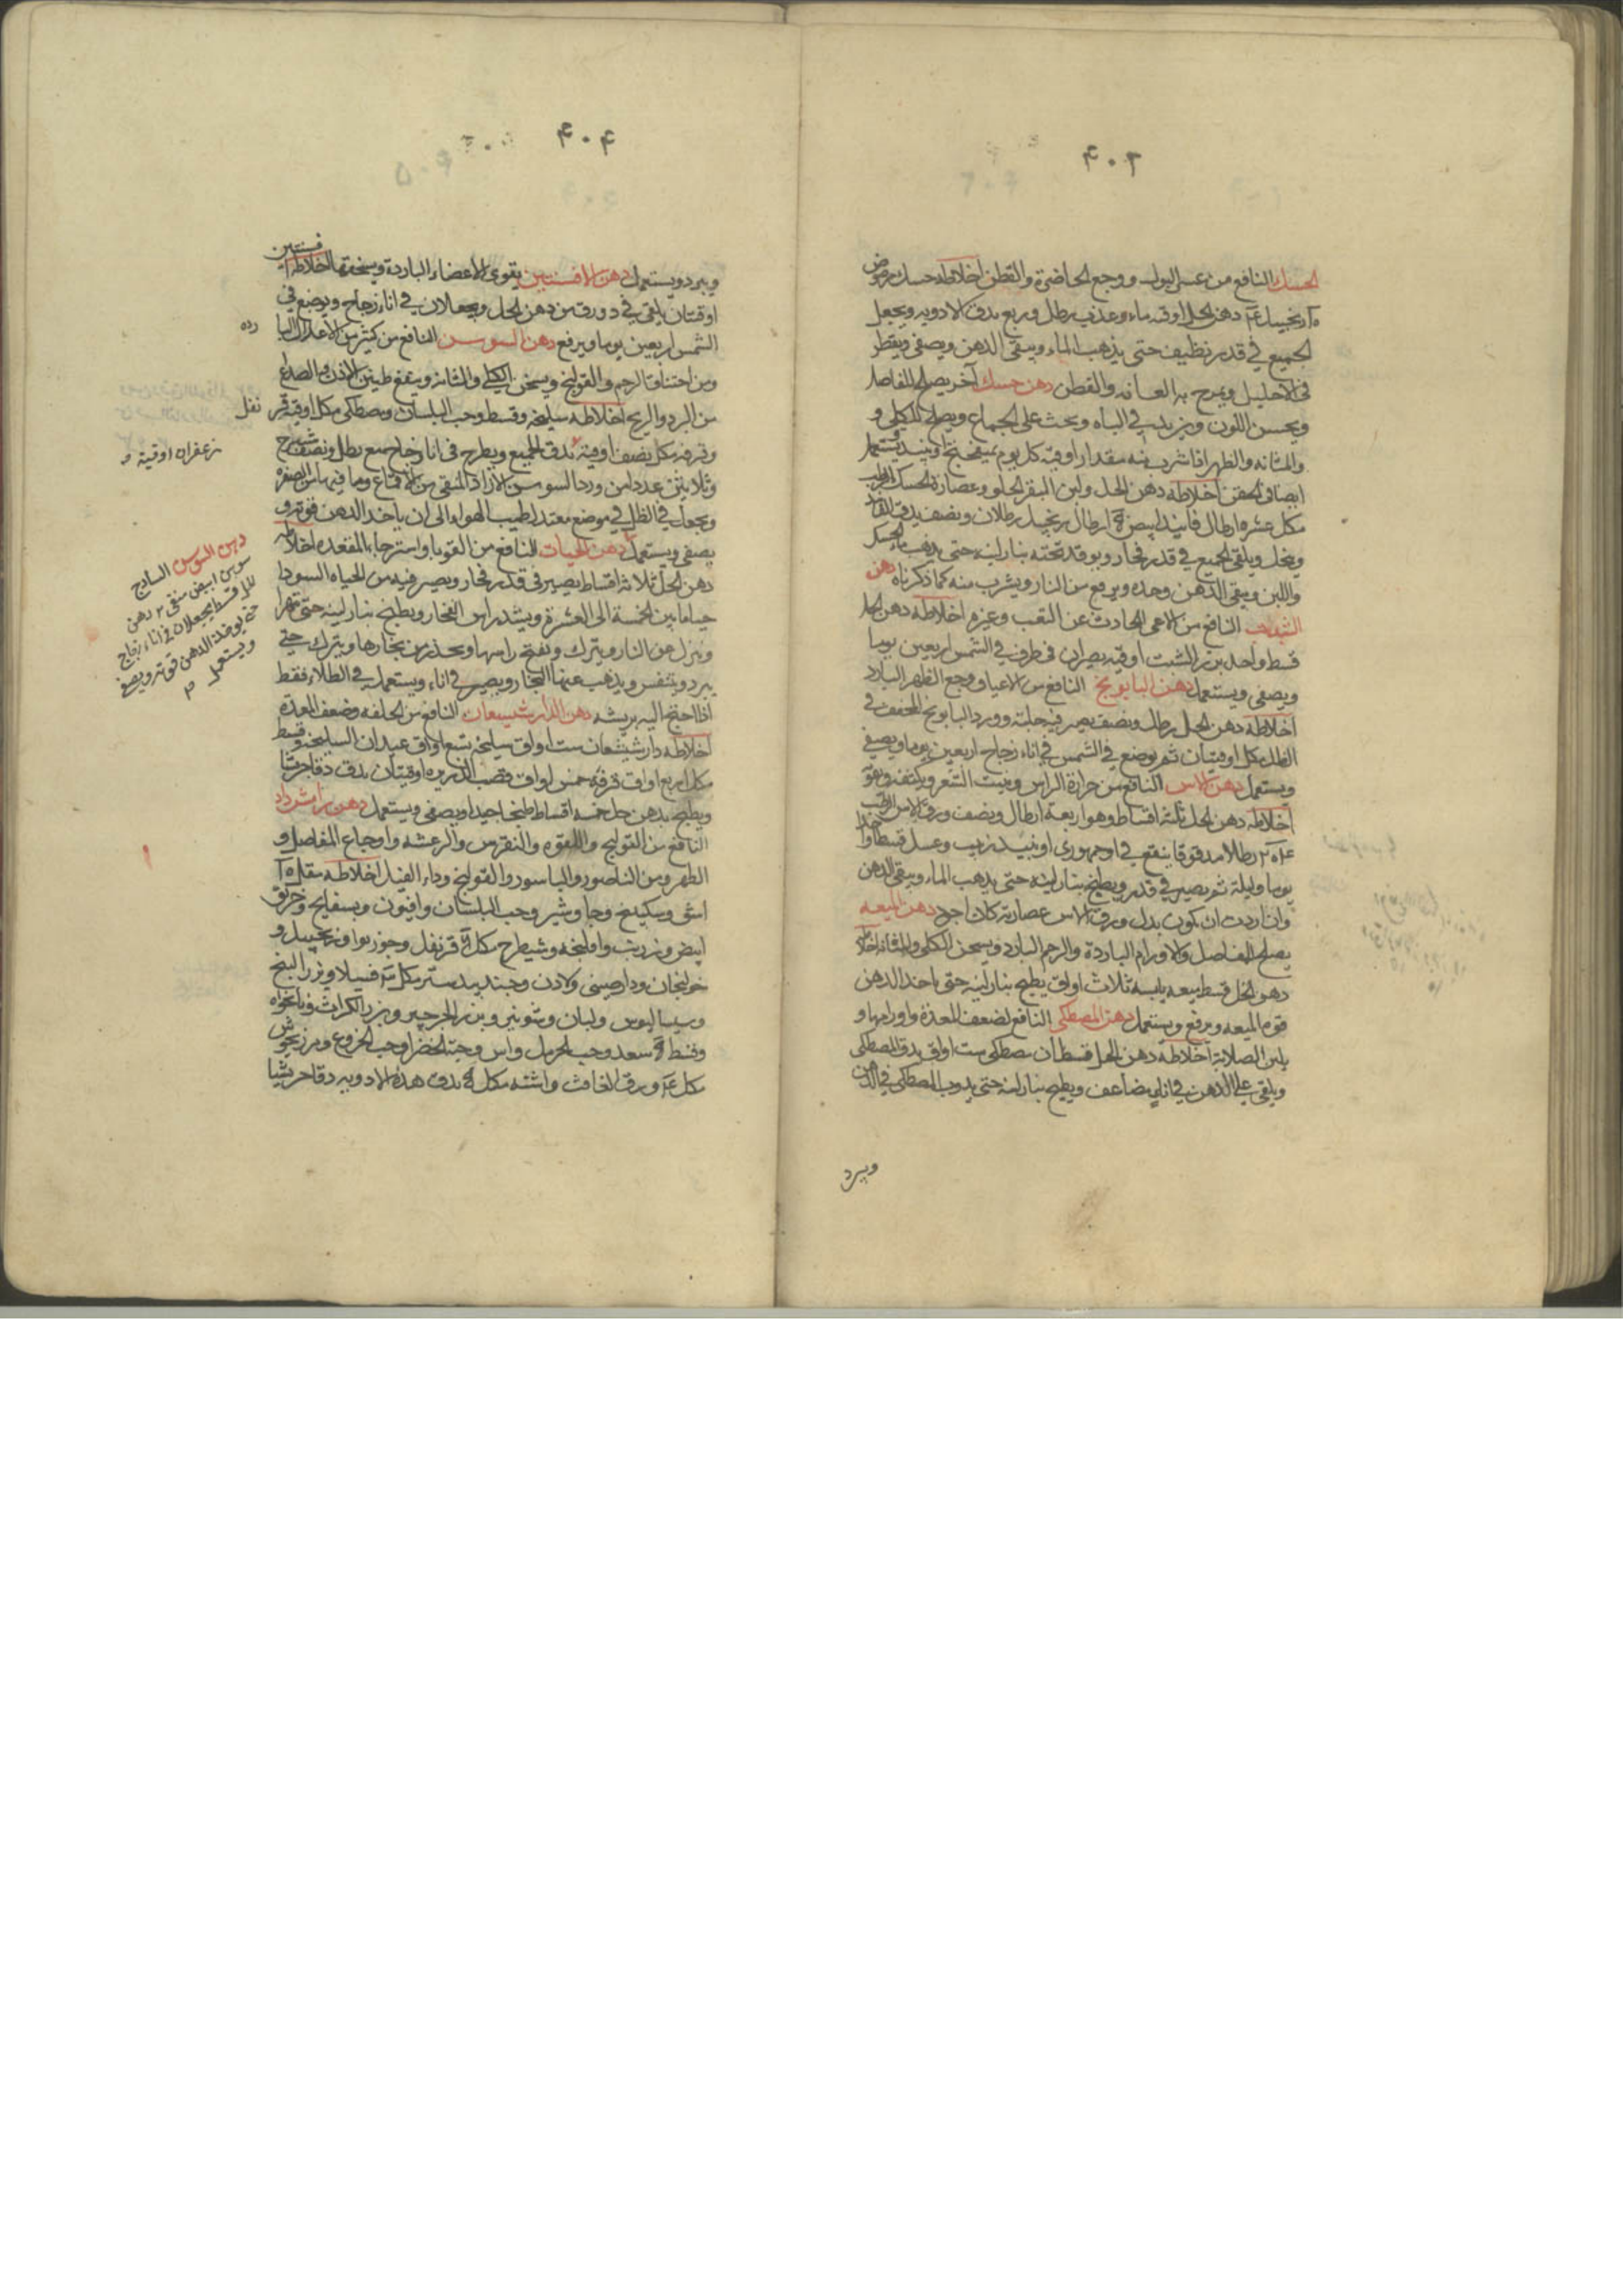 ۴۰۳
الحسك النافع من عسر البول ووجع الخاصرة والقطن اخلاطه حسك مرضوض
زنجبيل دهن الحل اوقيه ماء عذب رطل وربع يدق الادويه ويجعل
الجميع في قدر نظيف حتى يذهب الماء ويبقى الدهن ويصفى ويقطر
في الاحليل ويمرخ به العانه والقطن دهن حسك آخر يصلح للمفاصل
ويحسن اللون ويزيد في الباه ويحث على الجماع ويصلح للكلى و
والمثانه والظهر اذا شرب منه مقدار اوقيه كل يوم بميفختج او نبيذ ويستعمل
ايضا في الحقن اخلاطه دهن الحل ولبن البقر الحلو وعصارة الحسك الرطب
مكل عشره ارطال فانيذ ابيض ارطال زنجبيل رطلان ونصف يدق الفانيذ
وينخل ويلقى الجميع في قدر فخار ويوقد تحته بنار لينه حتى يذهب ماء الحسك
واللبن ويبقى الدهن وحده ويرفع من النار ويشرب منه كما ذكرناه دهن
الشبت النافع من الاعيا الحادث عن التعب وغيره اخلاطه دهن الحل
قسط واحد بزر الشبت اوقيه يصيران في ظرف في الشمس اربعين يوما
ويصفى ويستعمل دهن البابونج النافع من الاعيا ووجع الظهر البارد
اخلاطه دهن الحل رطل ونصف يصير فيه حلبة وورد البابونج المجفف في
الظل مكل اوقيتان ثم يوضع في الشمس في اناء زجاج اربعين يوما ويصفى
ويستعمل دهن الاس النافع من حرارة الراس وينبت الشعر ويكثفه ويقويه
اخلاطه دهن الحل ثلثة اقساط وهو اربعة ارطال ونصف ورق الاس الرطب
رطلا مدقوقا ينقع في جمهوري او نبيذ زبيب وعسل قسط واحد
يوما وليلة ثم يصير في قدر ويطبخ بنار لينه حتى يذهب الماء ويبقى الدهن
وان اردت ان يكون بدل ورق الاس عصارته كان اجود دهن الميعه
يصلح المفاصل والاورام الباردة والرحم البارد ويسخن الكلى والمثانه اخلاطه
دهن الحل قسط ميعه يابسه ثلاث اواق يطبخ بنار لينه حتى ياخذ الدهن
قوة الميعه ويرفع ويستعمل دهن المصطكى النافع لضعف المعدة واورامها و
يلين الصلابة اخلاطه دهن الحل قسطان مصطكى ست اواق يدق المصطكى
ويلقى على الدهن في اناء مضاعف ويطبخ بنار لينه حتى يذوب المصطكى في الدهن
ويبرد
۴۰۴
ويبرد ويستعمل دهن الافسنتين يقوى الاعضاء الباردة ويسخنها اخلاطه افسنتين
اوقيتان يلقى في دورق من دهن الحل ويجعلان في اناء زجاج ويوضع في
الشمس اربعين يوما ويرفع دهن السوسن النافع من كثير من الاعلال البا
رده
ومن اختناق الرحم والقولنج ويسخن الكلى والمثانه وينفع طنين الاذن والصداع
من البرد والريح اخلاطه سليخه وقسط وحب البلسان ومصطكى مكل اوقيه قر
نفل
وقرفه مكل نصف اوقيه يدق الجميع ويطرح في اناء زجاج مع رطل ونصف شيرج
زعفران اوقية
وثلاثين عددا من ورد السوسن الازاد المنقى من الاقماع وما فيه من الصفره
ويجعل في الظل في موضع معتدل طيب الهواء الى ان ياخذ الدهن قوته و
يصفى ويستعمل دهن الحيات النافع من القوبا واسترخاء المقعده اخلاطه
دهن الحل ثلاثة اقساط يصير في قدر فخار ويصير فيه من الحياه السودا
حيا ما بين الخمسة الى العشرة ويشد راس الفخار ويطبخ بنار لينه حتى تتهرا
وينزل عن النار ويترك ويفتح راسها ويحذر من بخارها ويترك حتى
يبرد ويتنفس ويذهب عنها البخار ويصير في اناء ويستعمل في الطلاء فقط
اذا احتيج اليه بريشه دهن الدارشيشعان النافع من الخلفه وضعف المعدة
اخلاطه دارشيشعان ست اواق سليخه تسع اواق عيدان البلسان وقسط
مكل اربع اواق قرفه خمس اواق وقصب الذريره اوقيتان يدق دقا جريشا
ويطبخ بدهن حل خمسه اقساط طبخا جيدا ويصفى ويستعمل دهن
النافع من القولنج واللقوه والنقرس والرعشه واوجاع المفاصل و
الظهر ومن الناصور والباسور والقولنج وداء الفيل اخلاطه مقل
اشق وسكبينج وجاوشير وحب البلسان وافيون وبسفايج وخربق
ابيض وزرنب وافلنجه وشيطرج مكل قرنفل وجوزبوا وزنجبيل و
خولنجان ودارصيني ولادن وجندبيدستر مكل وبزر البنج
وسيساليوس ولبان وشونيز وبزر الجرجير وبزر الكراث ونانخواه
وقسط سعد وحب الحرمل واس وحبة الخضرا وحب الخروع ومرزنجوش
مكل ورق الغافث واشنه مكل يدق هذه الادويه دقا جريشا
دهن السوسن الساذج
سوسن ابيض منقى دهن
الحل قسط يجعلان في اناء زجاج
حتى يوخذ الدهن قوته ويصفى
ويستعمل م